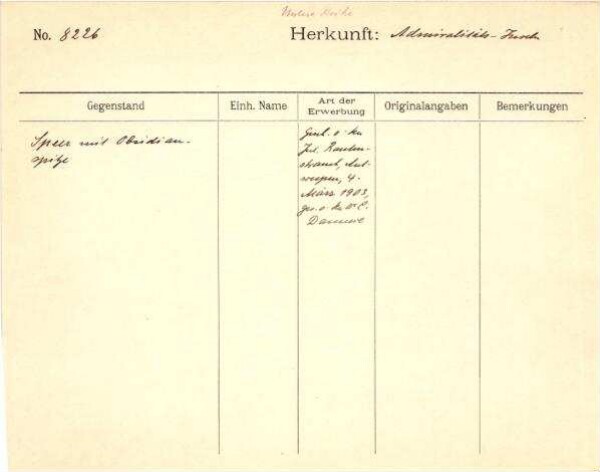 No. 8226
Herkunft: Admiralitäts-Inseln
Gegenstand
Einh. Name
Art der
Erwerbung
Originalangaben
Bemerkungen
Speer mit Obsidian-
spitze
Gesch. v. Hn
Jul. Rauten-
strauch, Ant-
werpen, 4.
März 1903,